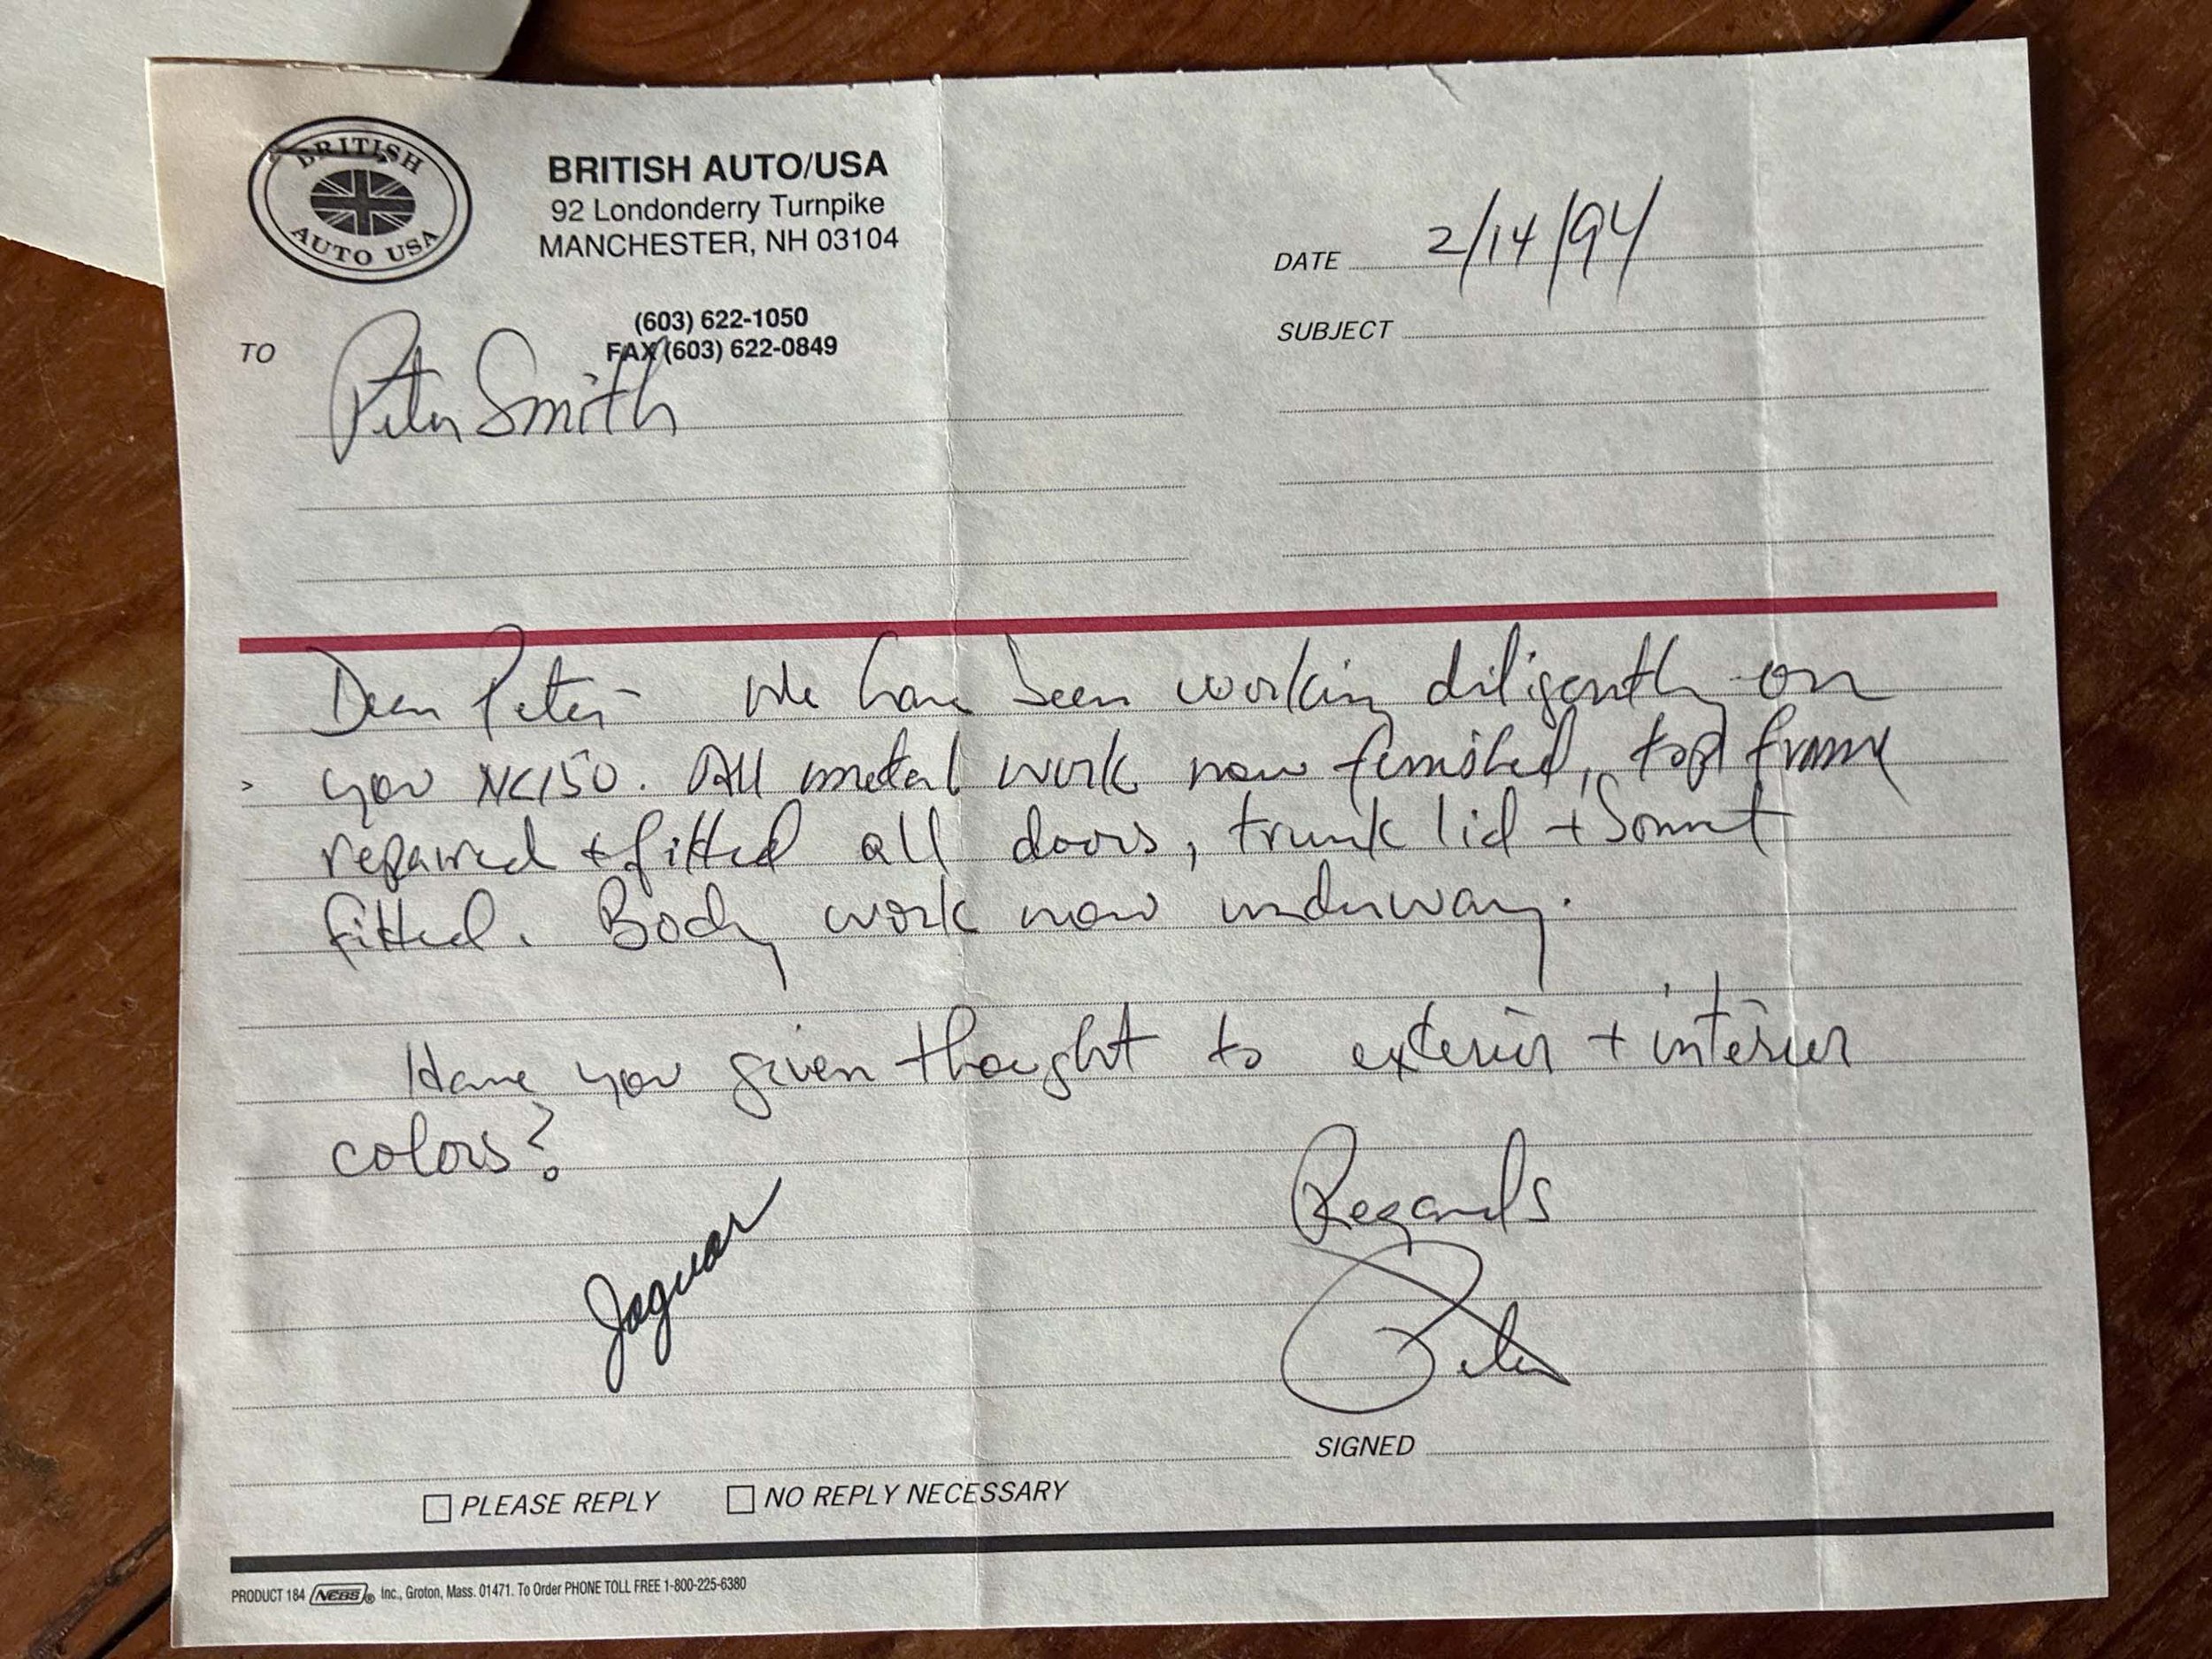 BRITISH
AUTO USA
BRITISH AUTO/USA
92 Londonderry Turnpike
MANCHESTER, NH 03104
(603) 622-1050
FAX (603) 622-0849
DATE 2/14/94
SUBJECT
TO Peter Smith
Dear Peter - We have been working diligently on
your XK150. All metal work now finished, top frame
repaired + fitted all doors, trunk lid + bonnet
fitted. Body work now underway.
Have you given thought to exterior + interior
colors?
Regards
Jaguar
Peter
SIGNED
PLEASE REPLY NO REPLY NECESSARY
PRODUCT 184 NEBS ® Inc., Groton, Mass. 01471. To Order PHONE TOLL FREE 1-800-225-6380